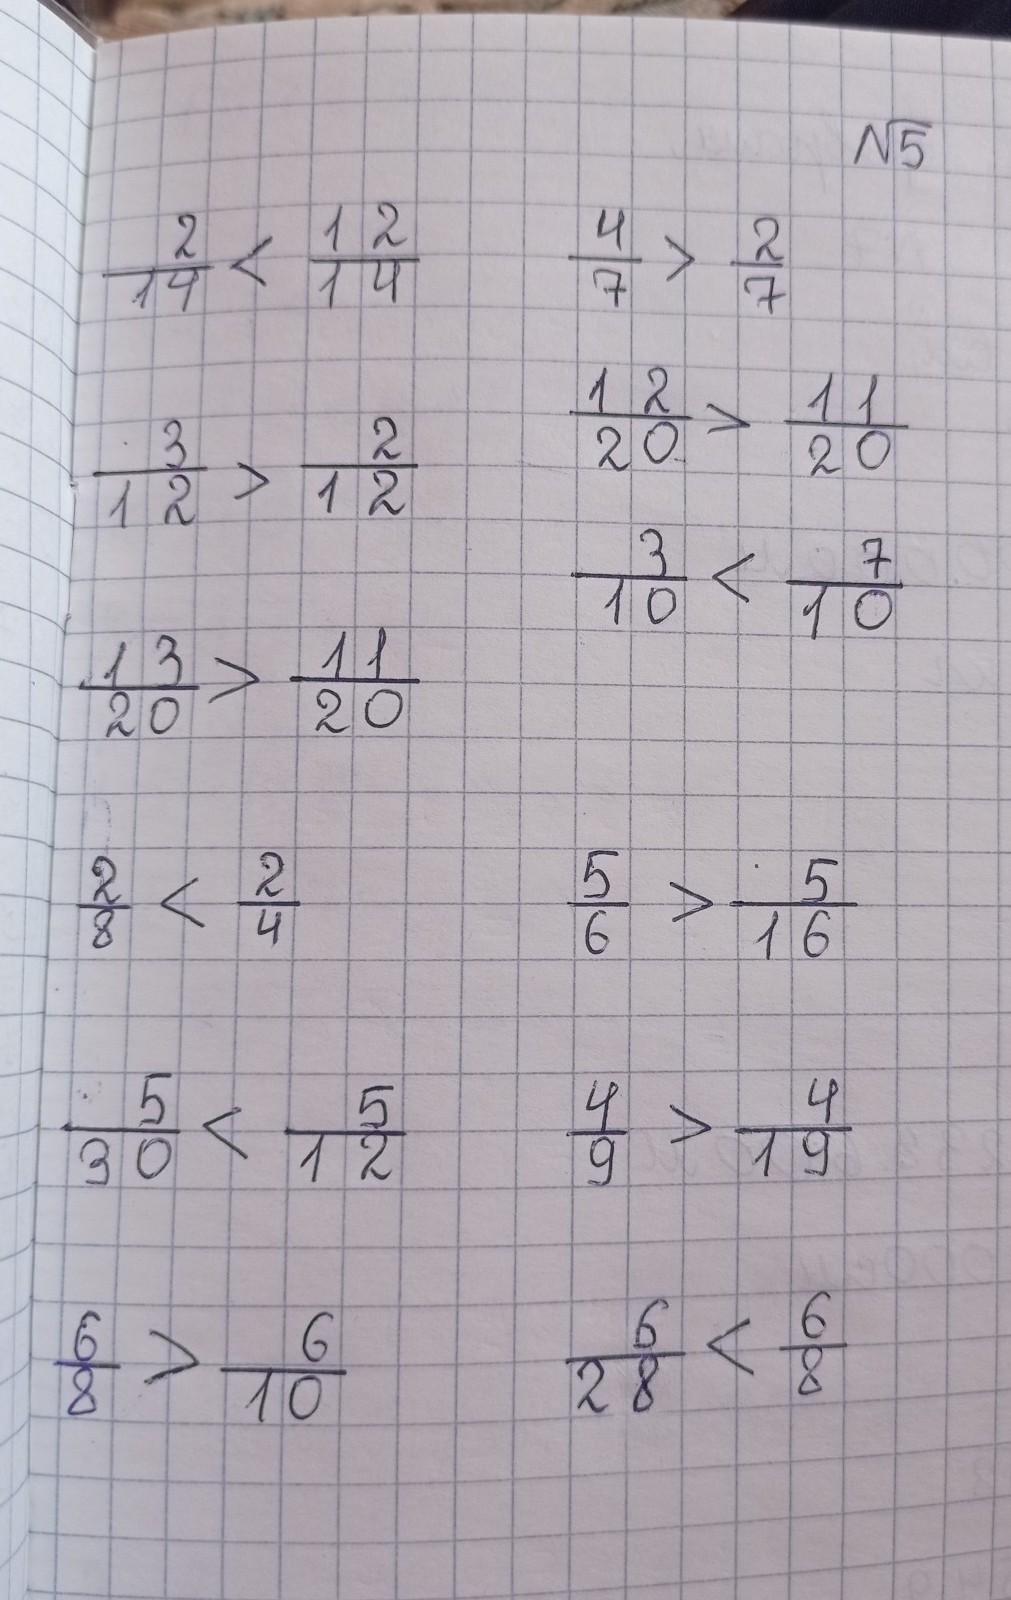 №5
2/14 < 12/14
4/7 > 2/7
3/12 > 2/12
12/20 > 11/20
3/10 < 7/10
13/20 > 11/20
2/8 < 2/4
5/6 > 5/16
5/30 < 5/12
4/9 > 4/19
6/8 > 6/10
6/28 < 6/8